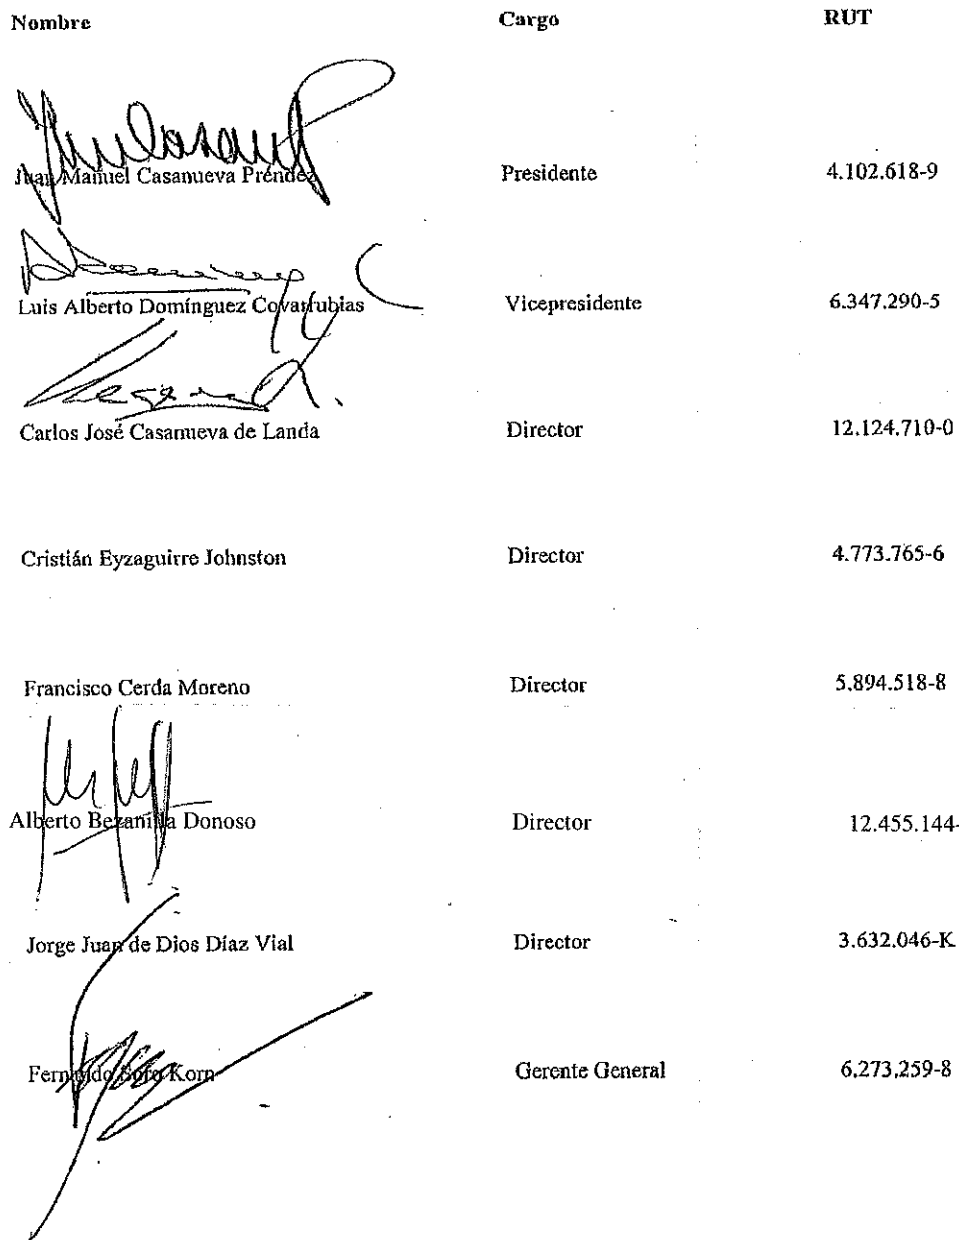 Nombre Cargo RUT
Juan Manuel Casanueva Préndez Presidente 4.102.618-9
Luis Alberto Domínguez Covarrubias Vicepresidente 6.347.290-5
Carlos José Casanueva de Landa Director 12.124.710-0
Cristián Eyzaguirre Johnston Director 4.773.765-6
Francisco Cerda Moreno Director 5.894.518-8
Alberto Bezanilla Donoso Director 12.455.144-
Jorge Juan de Dios Díaz Vial Director 3.632.046-K
Fernando Soro Korn Gerente General 6,273,259-8